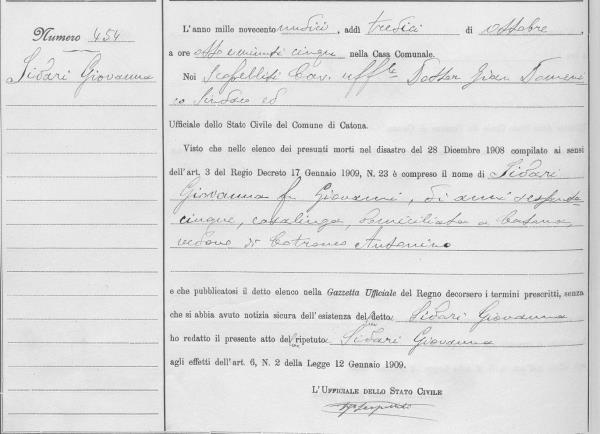 Numero 454
Sidari Giovanna
L'anno mille novecento undici, addì tredici di ottobre,
a ore otto e minuti cinque nella Casa Comunale.
Noi Scopelliti Cav. uff.le Dottor Gian Domeni
co Sindaco ed
Ufficiale dello Stato Civile del Comune di Catona.
Visto che nello elenco dei presunti morti nel disastro del 28 Dicembre 1908 compilato ai sensi
dell'art. 3 del Regio Decreto 17 Gennaio 1909, N. 23 è compreso il nome di Sidari
Giovanna fu Giovanni, di anni sessanta
cinque, casalinga, domiciliata a Catona,
vedova di Cotroneo Antonino
e che pubblicatosi il detto elenco nella Gazzetta Ufficiale del Regno decorsero i termini prescritti, senza
che si abbia avuto notizia sicura dell'esistenza del detta Sidari Giovanna
ho redatto il presente atto del ripetuta Sidari Giovanna
agli effetti dell'art. 6, N. 2 della Legge 12 Gennaio 1909.
L'UFFICIALE DELLO STATO CIVILE